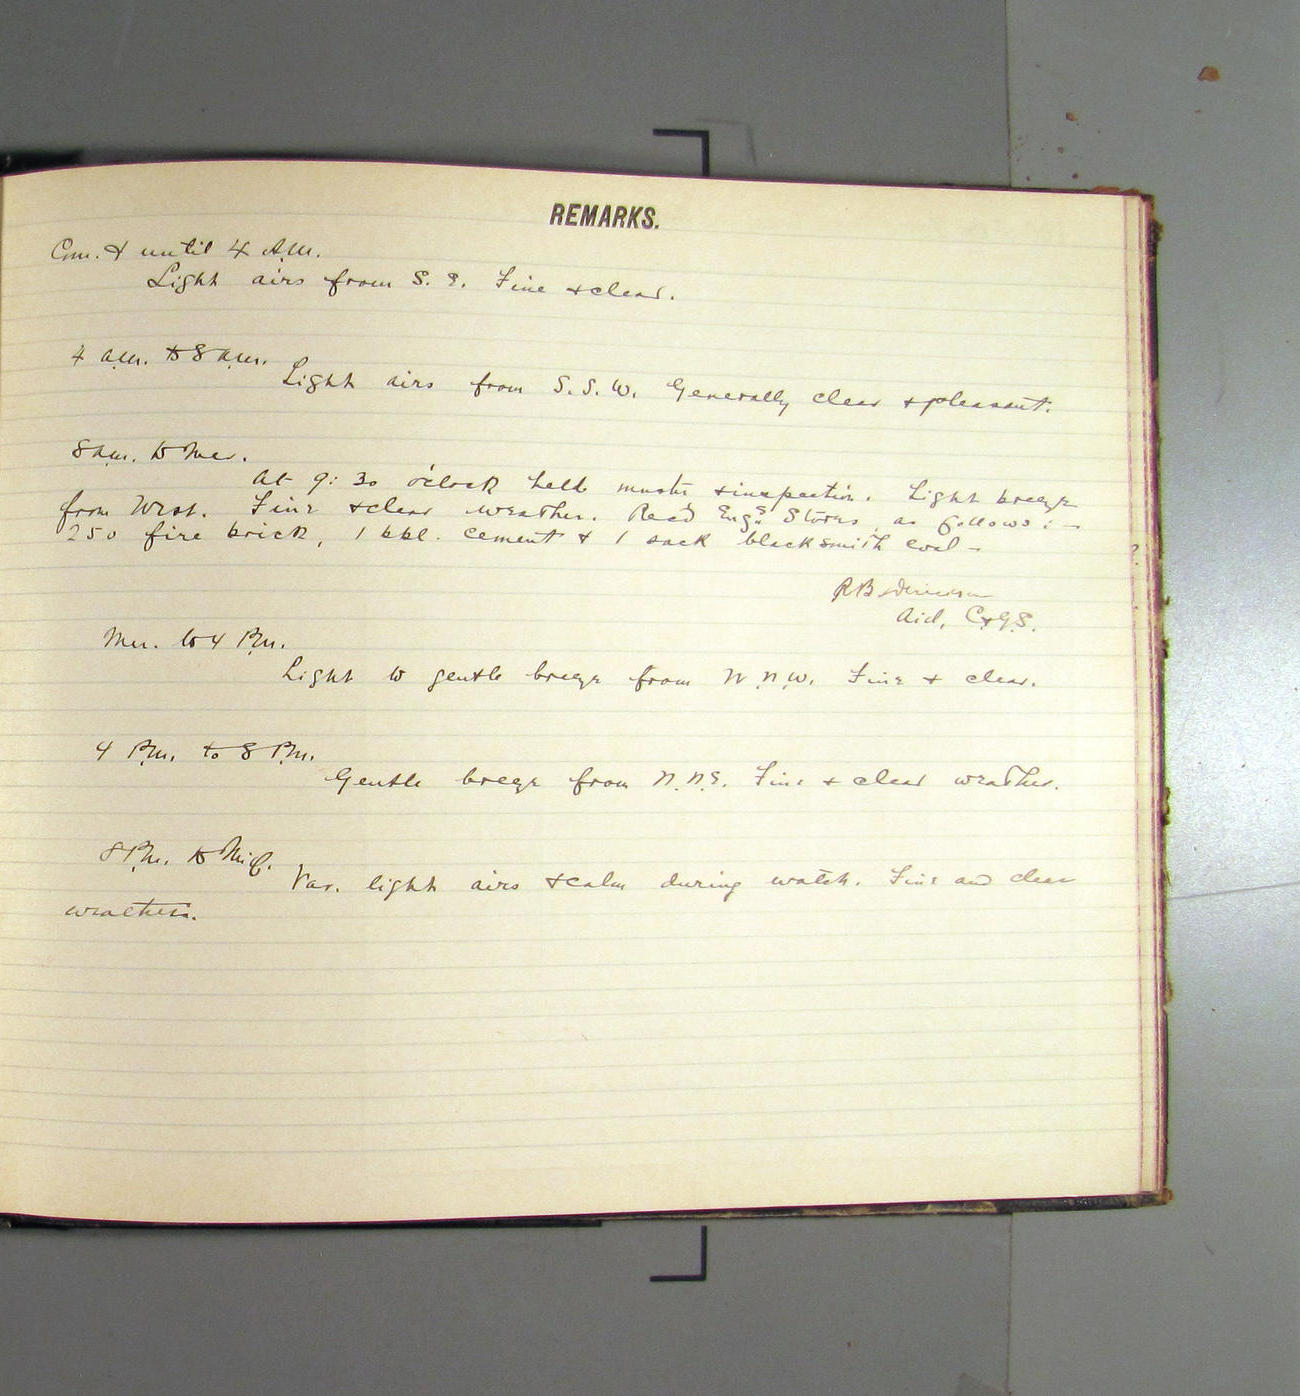 REMARKS.
Com. & until 4 A.M.
Light airs from S. E. Fine & clear.
4 a.m. to 8 a.m.
Light airs from S.S.W. Generally clear & pleasant.
8 am. to Mer.
At 9:30 o'clock held muster & inspection. Light breeze
from West. Fine & clear weather. Rec'd Eng's Stores, as follows: -
250 fire brick, 1 bbl. cement & 1 sack blacksmith coal -
Aid, C&G.S.
Mer. to 4 P.m.
Light to gentle breeze from N.N.W. Fine & clear.
4 P.m. to 8 P.m.
Gentle breeze from N.N.E. Fine & clear weather.
8 P.m. to Mid.
Var. light airs & calm during watch. Fine and clear
weather.